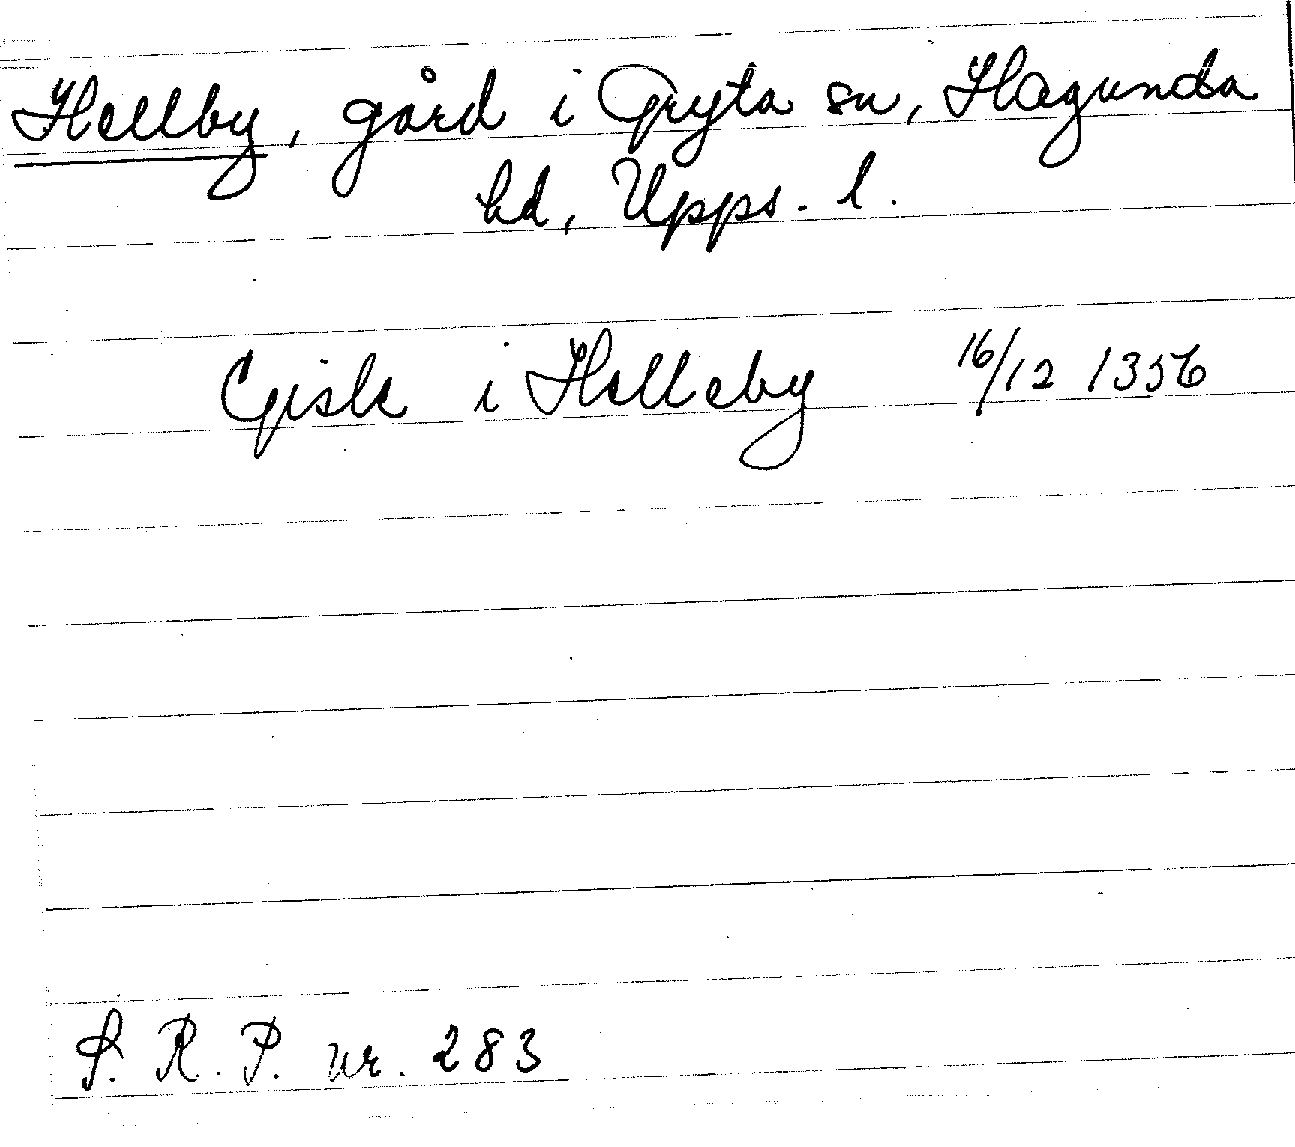 Hällby, gård i Gryta sn, Hagunda
hd, Upps. l.
Gisle i Hælleby 16/12 1356
S. R. P. nr. 283